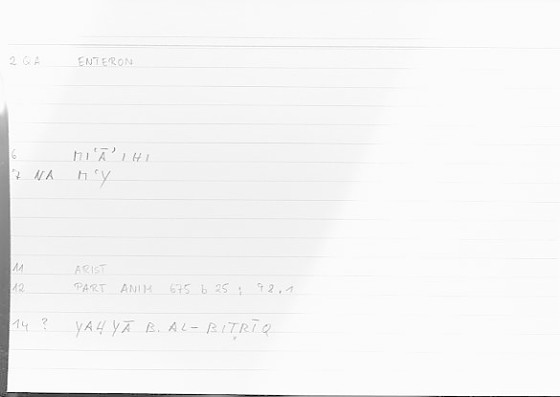 2 QA ENTERON
6 MIʿĀʾIHI
7 NA MʿY
11 ARIST
12 PART ANIM 675 b 25 ; 92.1
14 ? YAḤYĀ B. AL-BIṬRĪQ